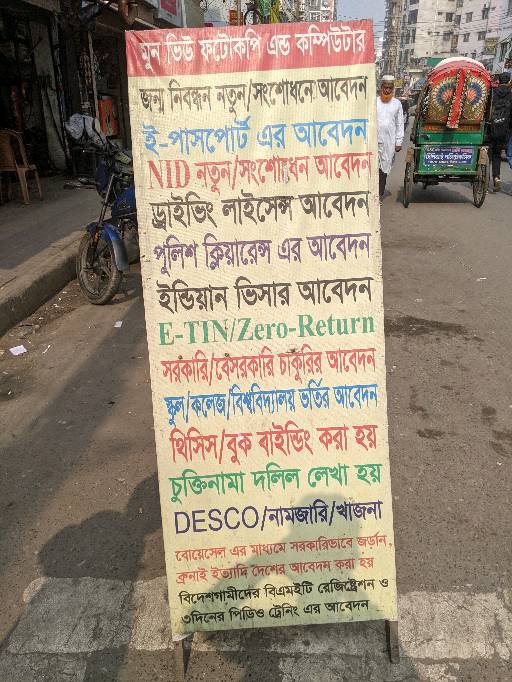 মুন ভিউ ফটোকপি এন্ড কম্পিউটার
জন্ম নিবন্ধন নতুন/সংশোধনে আবেদন
ই-পাসপোর্ট এর আবেদন
NID নতুন/সংশোধন আবেদন
ড্রাইভিং লাইসেন্স আবেদন
পুলিশ ক্লিয়ারেন্স এর আবেদন
ইন্ডিয়ান ভিসার আবেদন
E-TIN/Zero-Return
সরকারি/বেসরকারি চাকুরির আবেদন
স্কুল/কলেজ/বিশ্ববিদ্যালয় ভর্তির আবেদন
থিসিস/বুক বাইন্ডিং করা হয়
চুক্তিনামা দলিল লেখা হয়
DESCO/নামজারি/খাজনা
বোয়েসেল এর মাধ্যমে সরকারিভাবে জর্ডান,
ব্রুনাই ইত্যাদি দেশের আবেদন করা হয়
বিদেশগামীদের বিএমইটি রেজিষ্ট্রেশন ও
৩দিনের পিডিও ট্রেনিং এর আবেদন